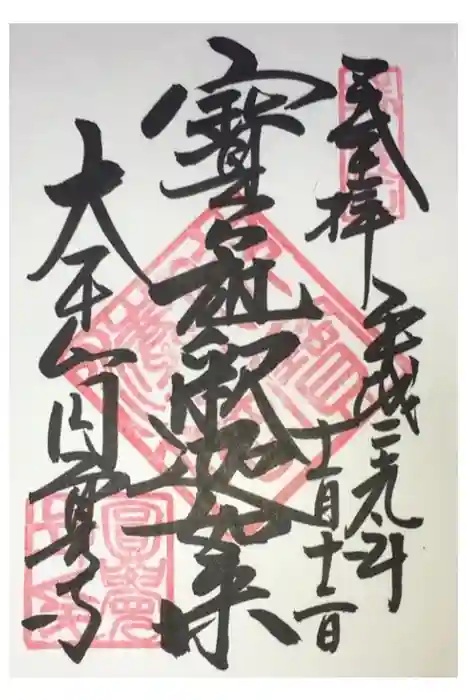 奉拝
平成二十九年
十一月十二日
寶冠釈迦如来
大本山円覚寺